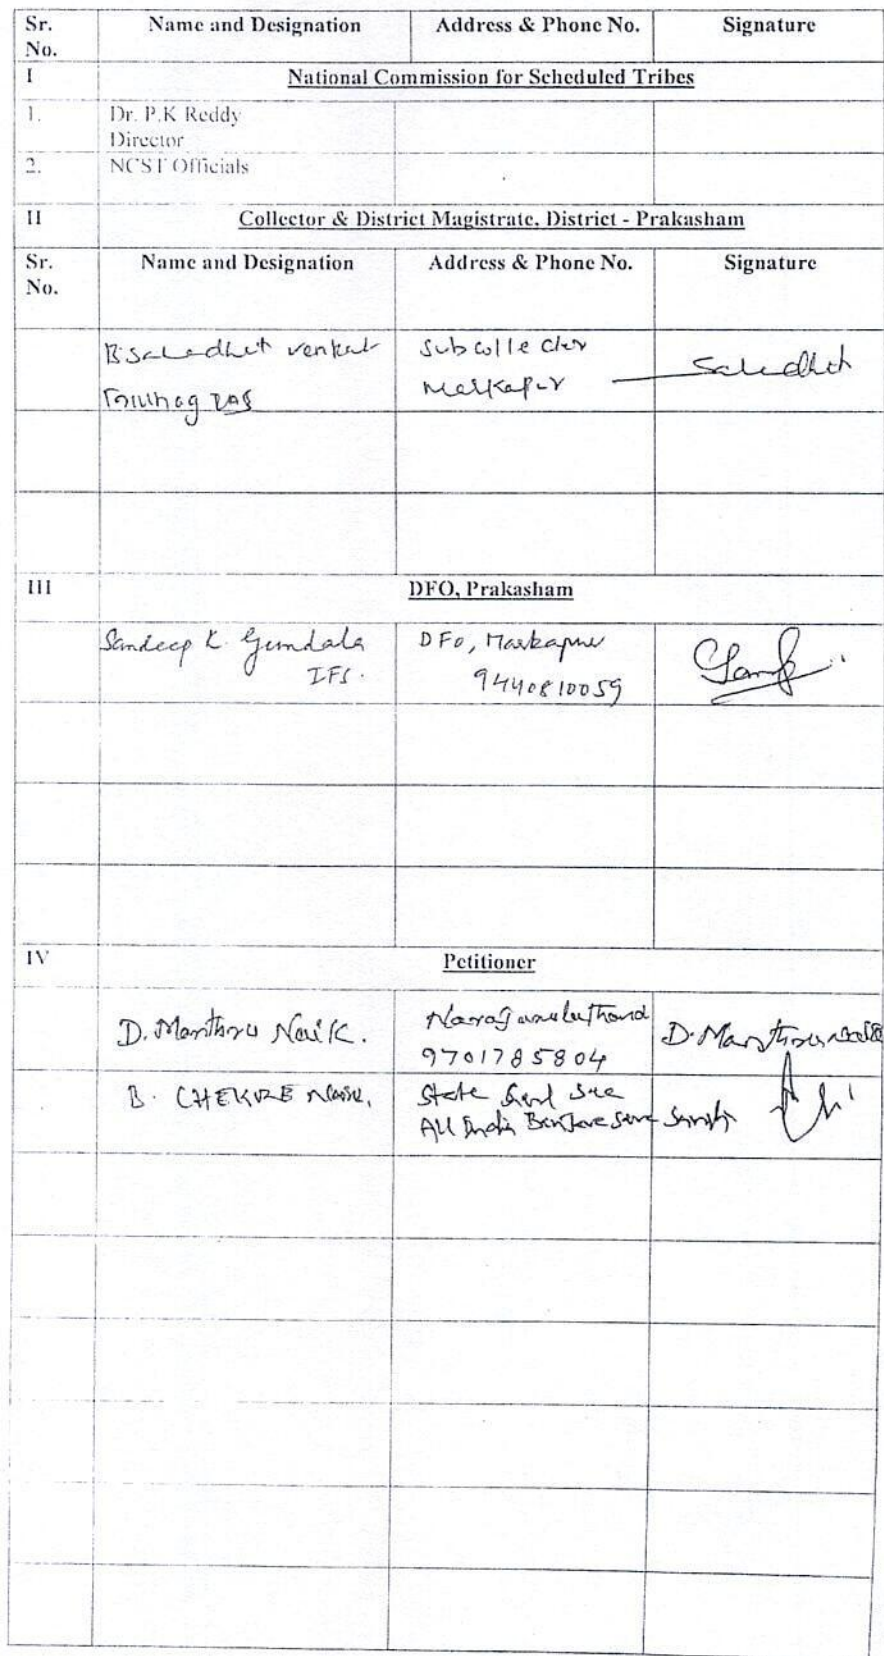 Sr. No. Name and Designation Address & Phone No. Signature
I National Commission for Scheduled Tribes
1. Dr. P.K Reddy
Director
2. NCST Officials
II Collector & District Magistrate, District - Prakasham
Sr. No. Name and Designation Address & Phone No. Signature
venkat
Subcollector
Markapur
III DFO, Prakasham
Sandeep K. Gundala
IFS.
DFO, Markapur
9440810059
IV Petitioner
D. Manthru Naik.
9701785804
D. Manthru Naik
B. CHEKRE Naik,
State Genl Sec
All India Banjara Seva Samithi